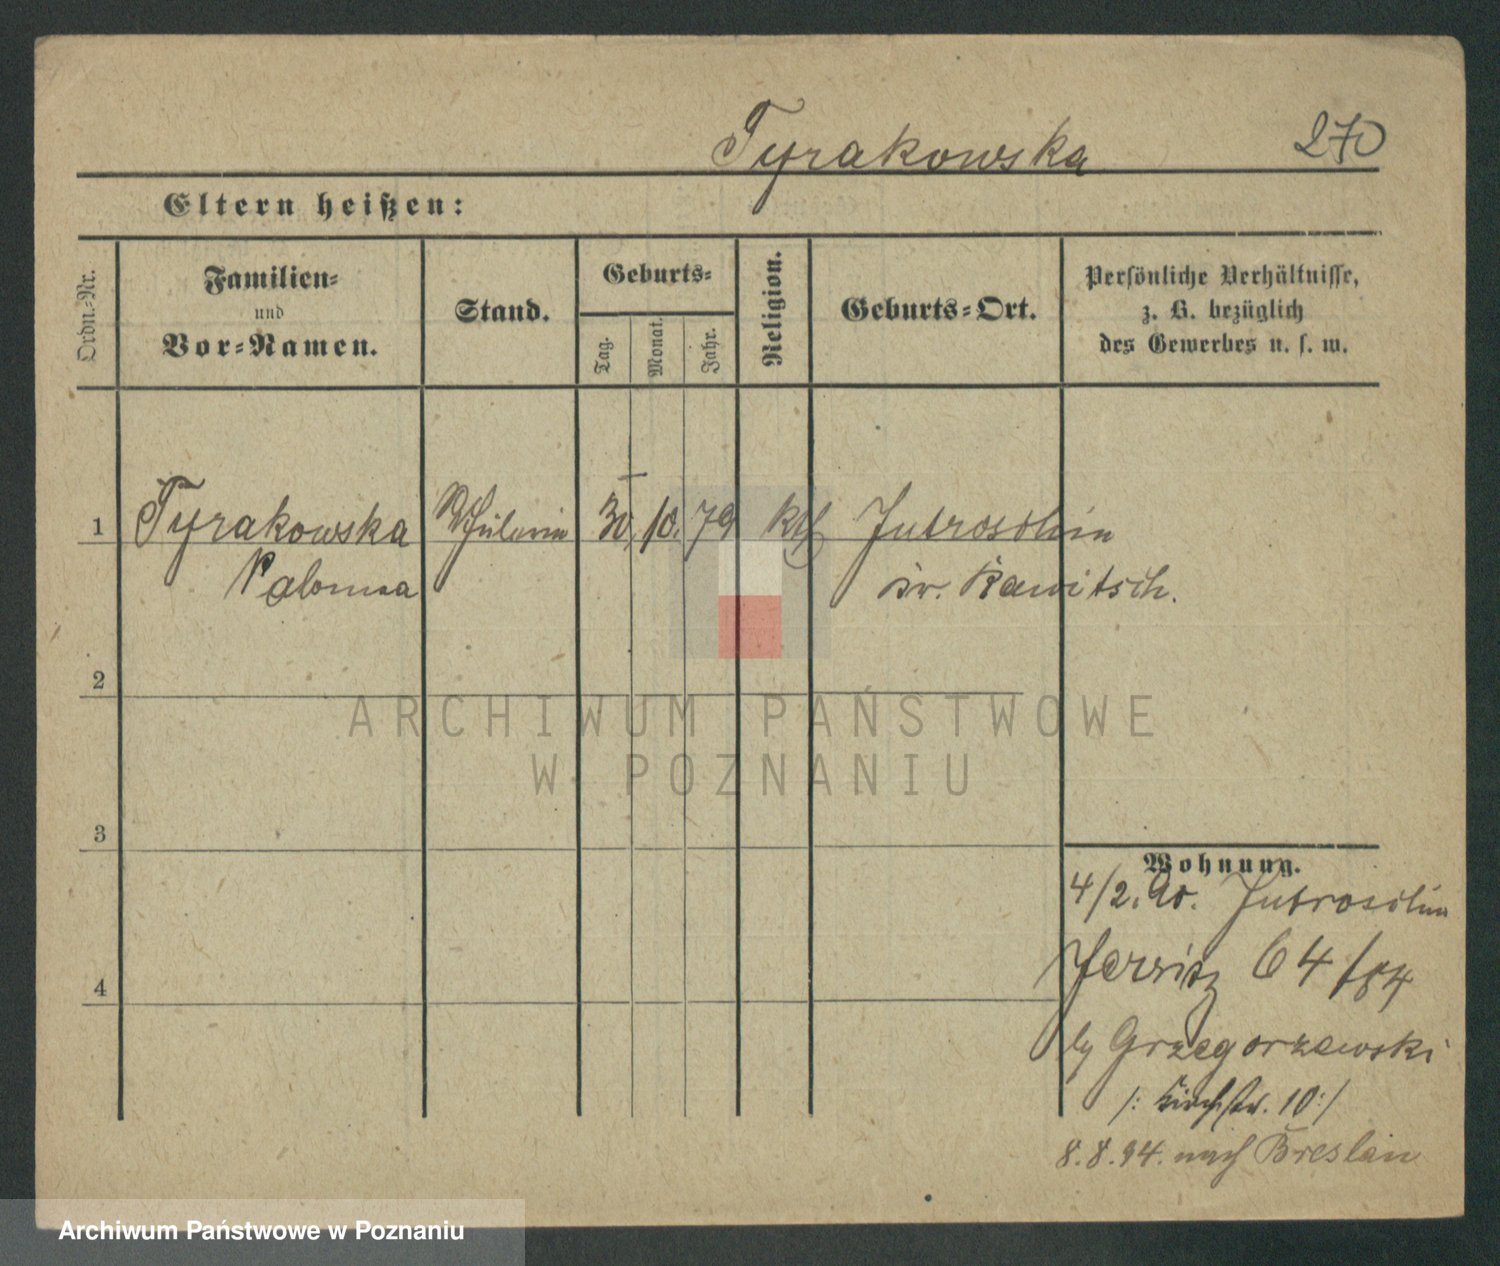 Tyrakowska
270
Eltern heißen:
Ordn.-Nr.
Familien-
und
Vor-Namen.
Stand.
Geburts-
Tag.
Monat.
Jahr.
Religion.
Geburts-Ort.
Persönliche Verhältnisse,
z. B. bezüglich
des Gewerbes u. s. w.
1
Tyrakowska
Schülerin
30. 10. 79
kth
Jutroschin
Kr. Rawitsch.
2
ARCHIWUM PAŃSTWOWE
W POZNANIU
3
Wohnung.
4/2. 90. Jutroschin
4
Jersitz 64/84
by Grzegorzewski
/: Kirchstr. 10 :/
8. 8. 94. nach Breslau
Archiwum Państwowe w Poznaniu